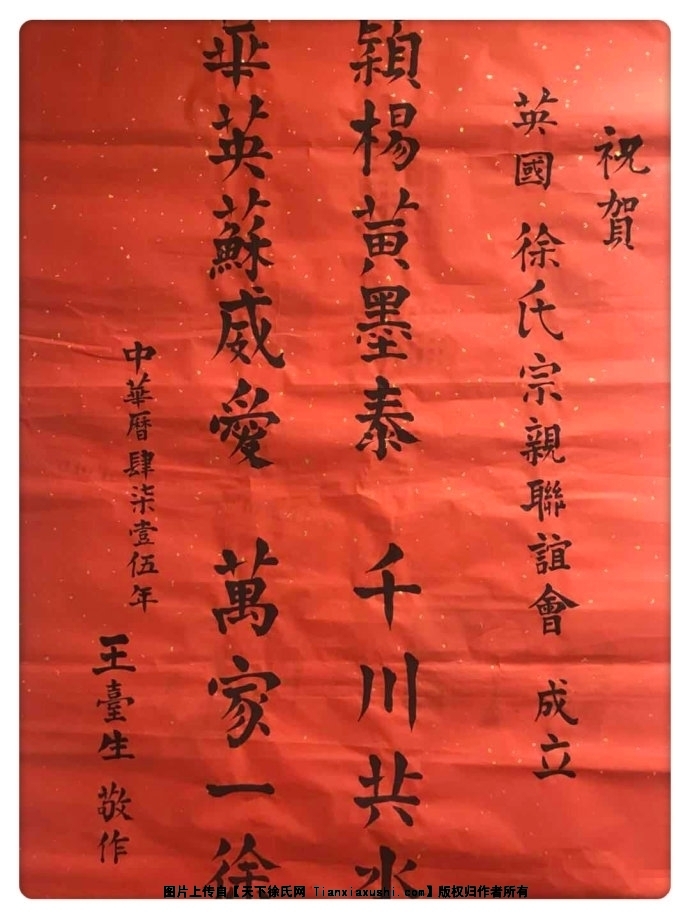 祝賀
英國 徐氏宗親聯誼會 成立
穎楊黃墨泰 千川共水
華英蘇威愛 萬家一徐
中華曆肆柒壹伍年
王臺生 敬作
图片上传自【天下徐氏网 Tianxiaxushi.com】版权归作者所有